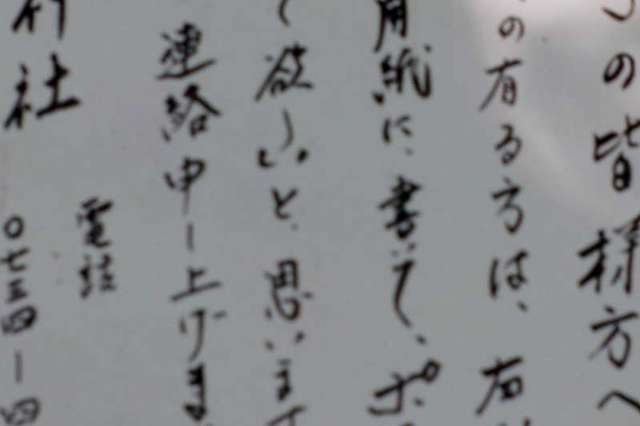 の皆様方へ
の有る方は、右
用紙に書いて、ポ
て欲しいと思います
連絡申し上げま
社
電話
〇七三四ー四